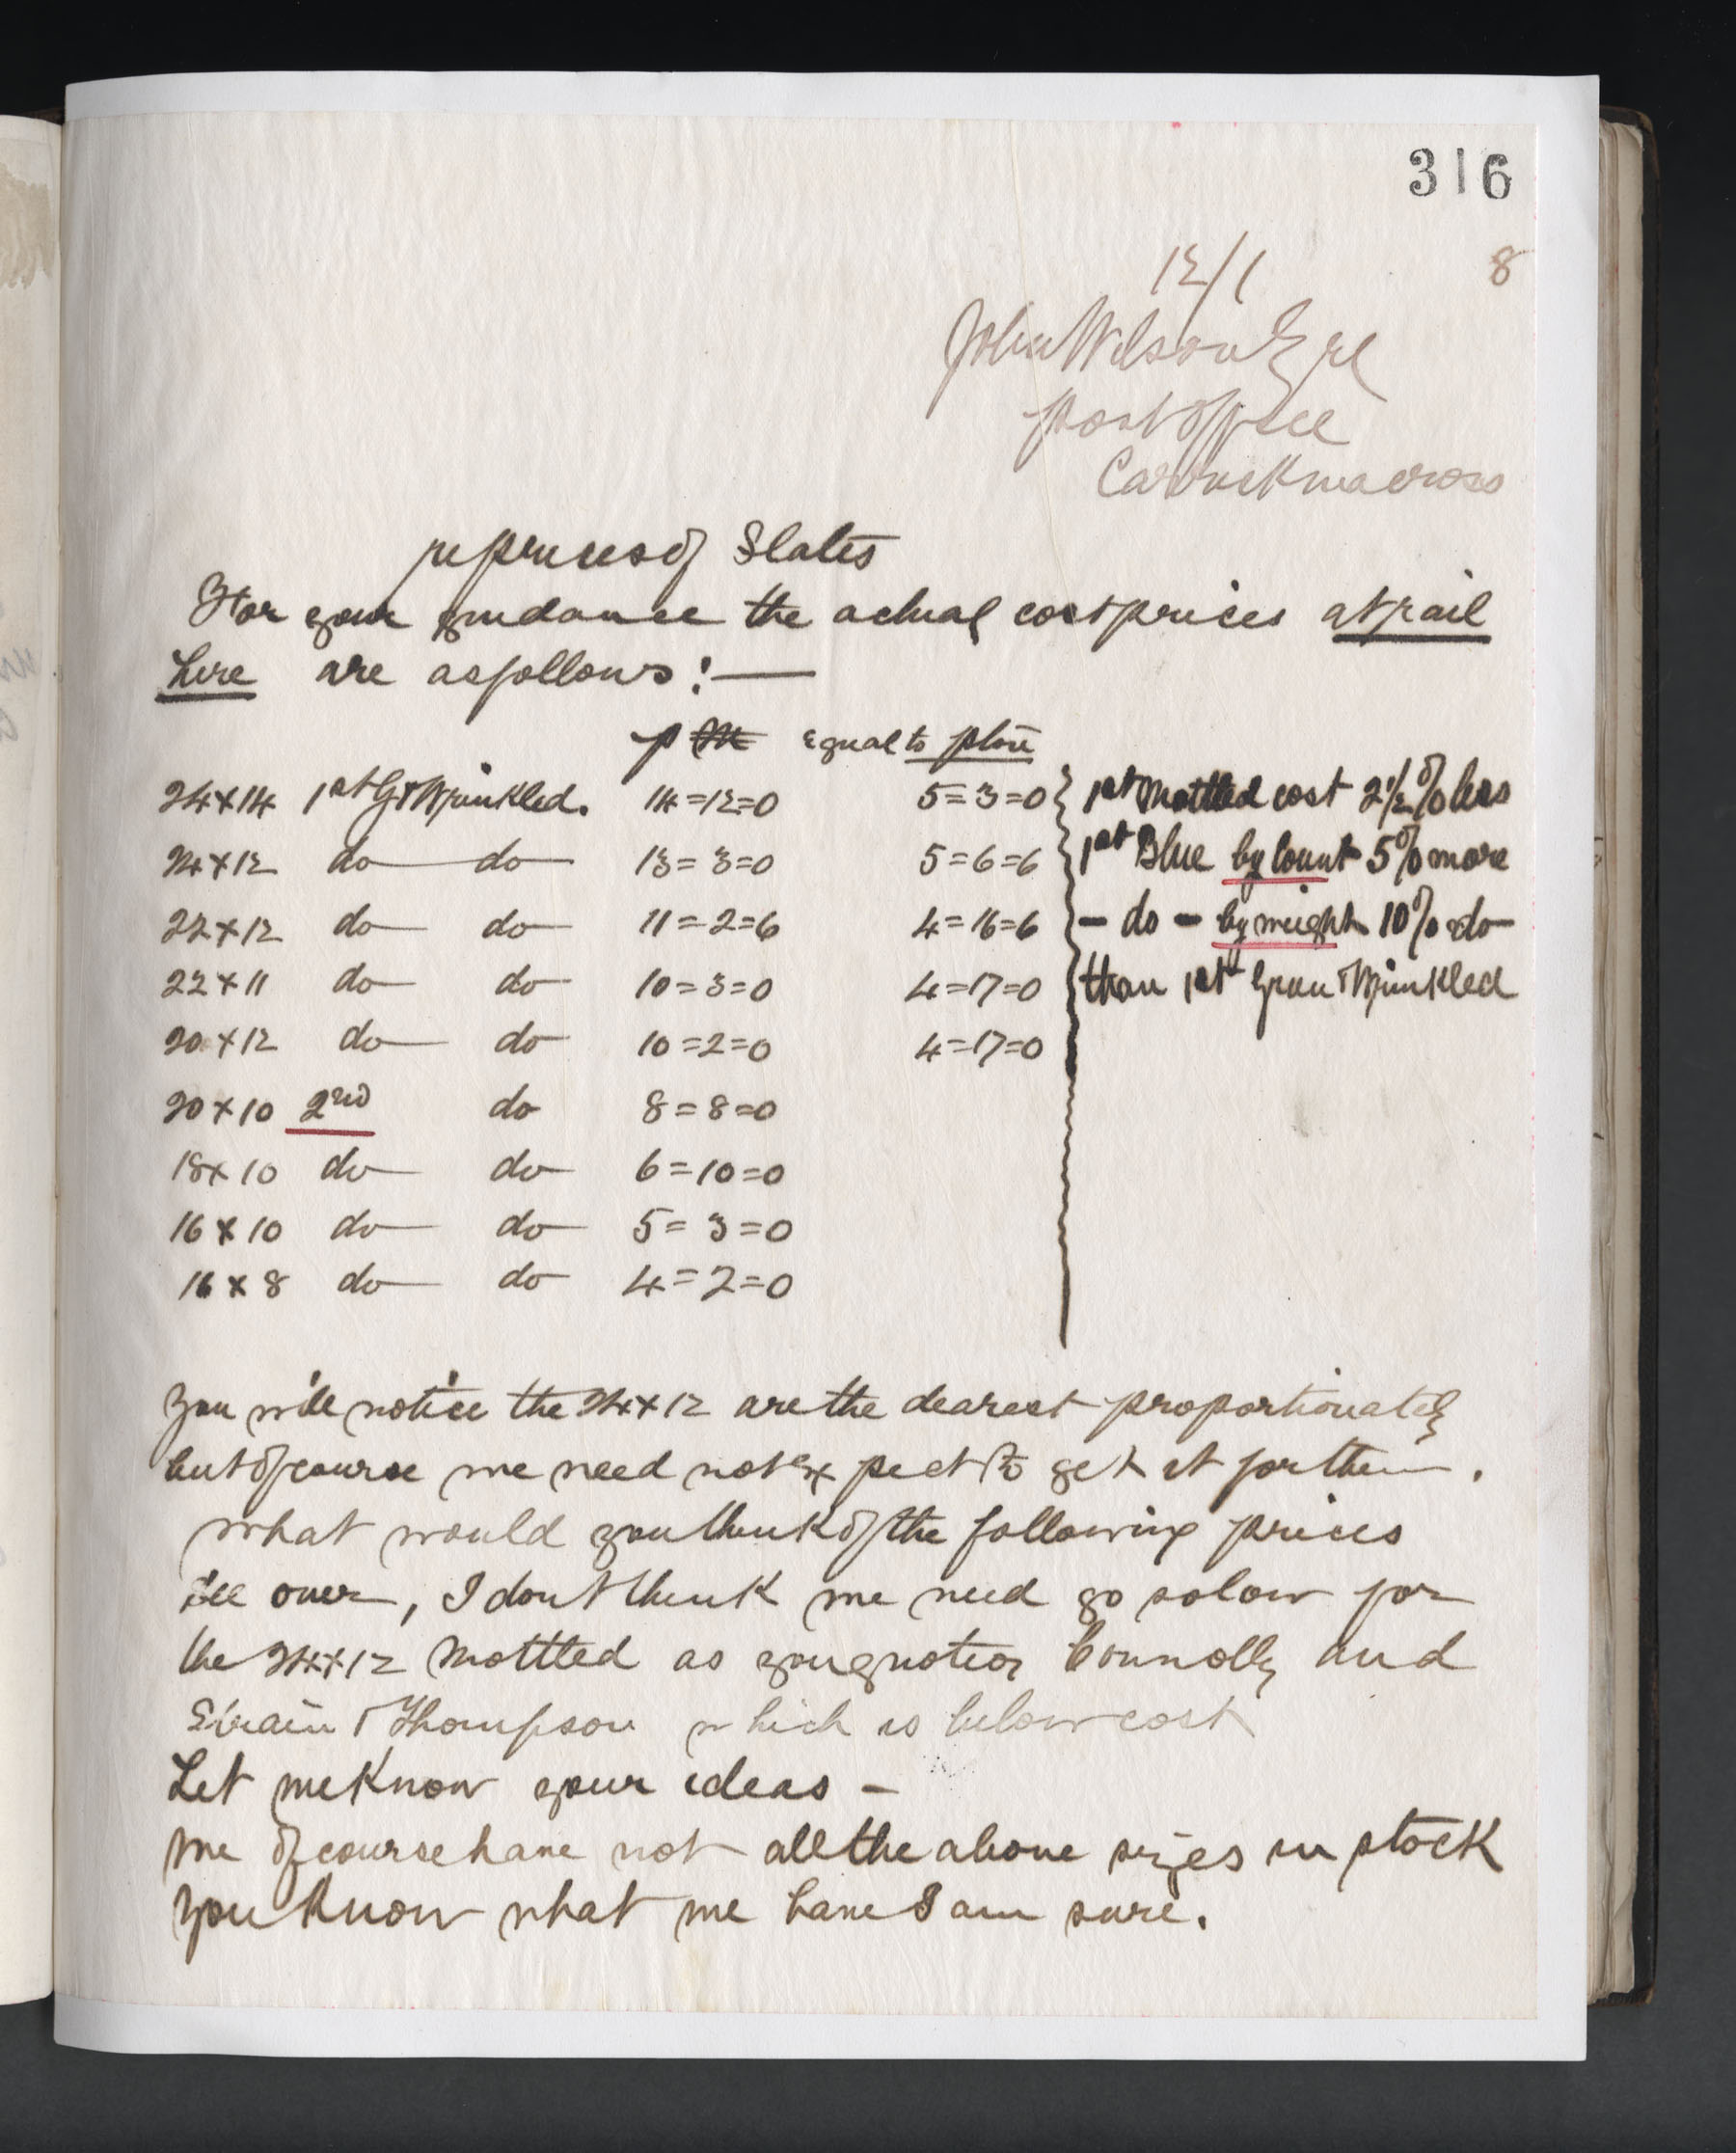 316
12/1 8
John Wilson Esq
Post Office
Carrickmacross
re prices of Slates
For your guidance the actual cost prices at rail
here are as follows:—
p M equal to p ton
24x14 1st G & Wrinkled. 14=12=0 5=3=0 1st Mottled cost 2½% less
24x12 do do 13=3=0 5=6=6 1st Blue by count 5% more
22x12 do do 11=2=6 4=16=6 - do - by weight 10% do
22x11 do do 10=3=0 4=17=0 than 1st Green & Wrinkled
20x12 do do 10=2=0 4=17=0
20x10 2nd do 8=8=0
18x10 do do 6=10=0
16x10 do do 5=3=0
16x8 do do 4=2=0
You will notice the 24x12 are the dearest proportionately
but of course we need not expect to get it for them.
What would you think of the following prices
all over, I dont think we need go so low for
the 24x12 Mottled as you quote Connolly and
Strain & Thompson which is below cost
Let me know your ideas -
We of course have not all the above sizes in stock
You know what we have I am sure.